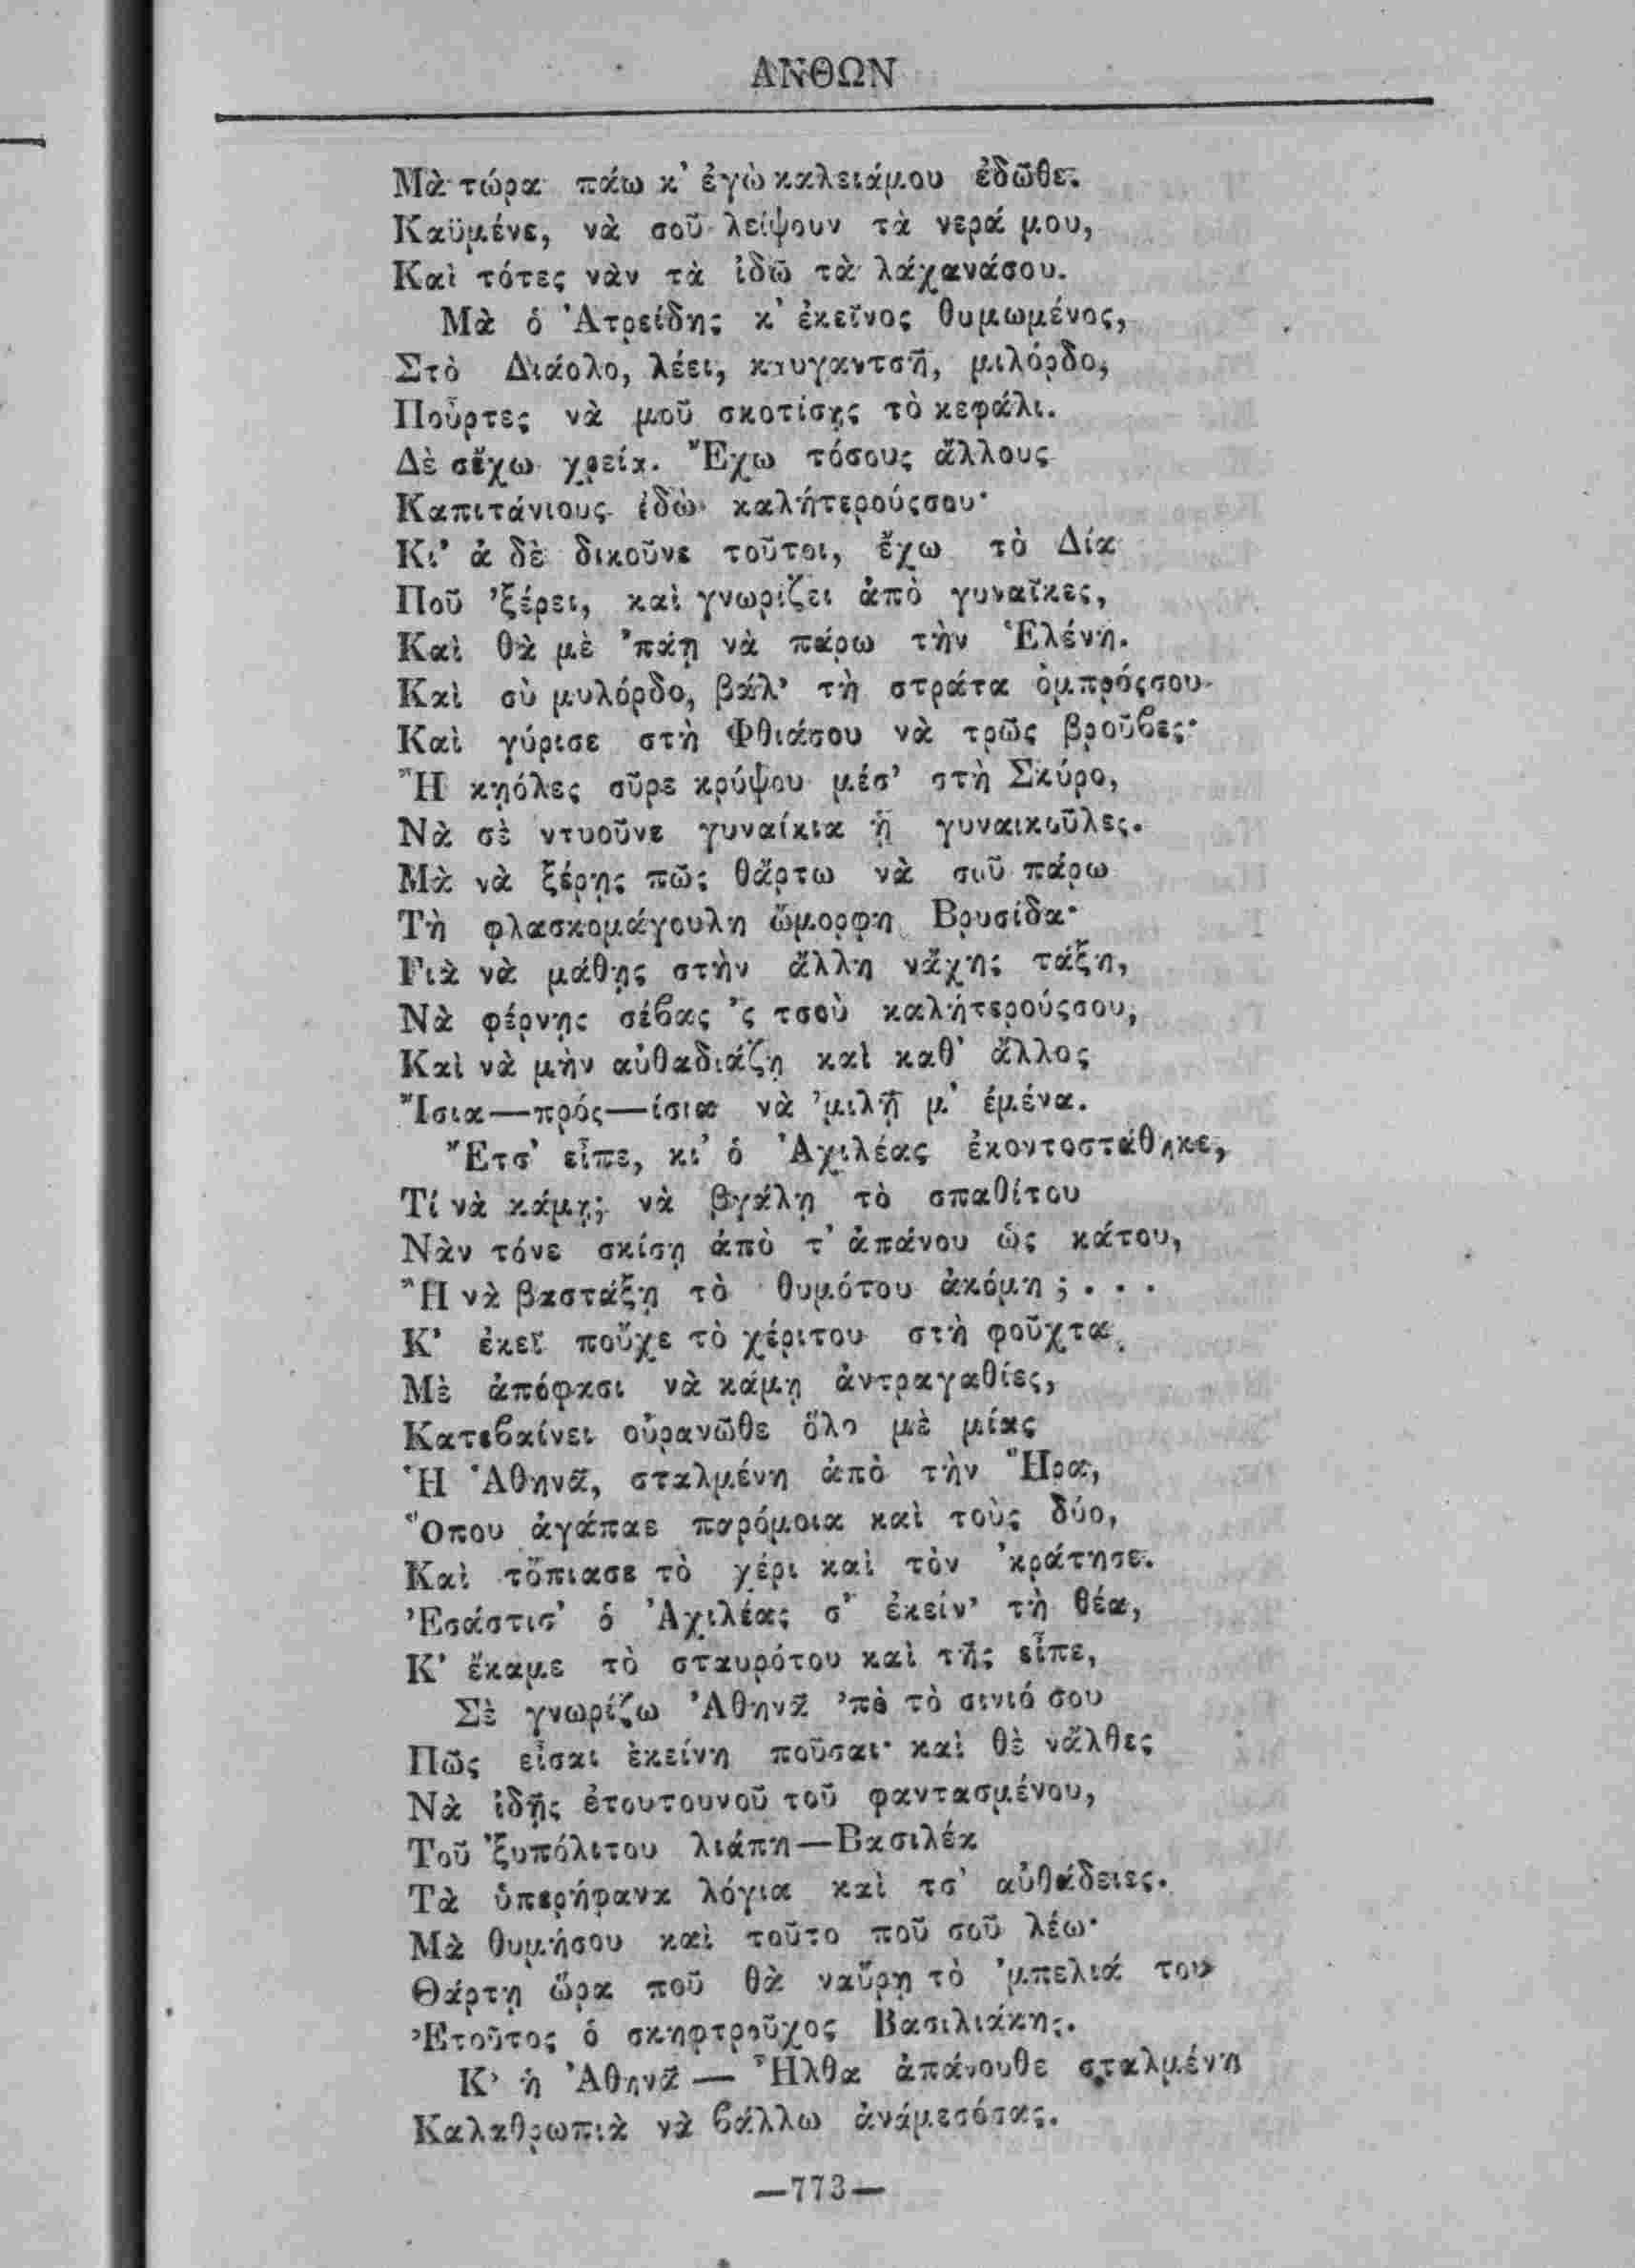 ΑΝΘΩΝ
Μὰ τώρα πάω κ' ἐγὼ καλειάμου ἐδῶθε.
Καϋμένε, νὰ σοῦ λείψουν τὰ νερά μου,
Καὶ τότες νὰν τὰ ἰδῶ τὰ λάχανάσου.
Μὰ ὁ Ἀτρείδης κ' ἐκεῖνος θυμωμένος,
Στὸ Διάολο, λέει, καυγαντσῆ, μιλόρδο,
Ποὖρτες νὰ μοῦ σκοτίσῃς τὸ κεφάλι.
Δὲ σἔχω χρεία. Ἔχω τόσους ἄλλους
Καπιτάνιους ἐδὼ καλήτερούςσου·
Κι' ἀ δὲ δικοῦνε τοῦτοι, ἔχω τὸ Δία
Ποῦ 'ξέρει, καὶ γνωρίζει ἀπὸ γυναῖκες,
Καὶ θὰ μὲ 'πάῃ νὰ πάρω τὴν Ἑλένη.
Καὶ σὺ μυλόρδο, βάλ' τὴ στράτα ὀμπρόςσου
Καὶ γύρισε στὴ Φθιάσου νὰ τρῶς βροῦβες·
Ἢ κῃόλες σῦρε κρύψου μέσ' στὴ Σκύρο,
Νὰ σὲ ντυοῦνε γυναίκια ᾑ γυναικοῦλες.
Μὰ νὰ ξέρῃς πῶς θἄρτω νὰ σοῦ πάρω
Τὴ φλασκομάγουλη ὤμορφη Βρυσίδα·
Γιὰ νὰ μάθῃς στὴν ἄλλη νἄχῃς τάξη,
Νὰ φέρνῃς σέβας 'ς τσοὺ καλήτερούςσου,
Καὶ νὰ μὴν αὐθαδιάζῃ καὶ καθ' ἄλλος
Ἴσια—πρός—ίσια νὰ 'μιλῇ μ' ἐμένα.
Ἔτσ' εἶπε, κι' ὁ Ἀχιλέας ἐκοντοστάθηκε,
Τί νὰ κάμῃ; νὰ βγάλῃ τὸ σπαθίτου
Νὰν τόνε σκίσῃ ἀπὸ τ' ἀπάνου ὡς κάτου,
Ἢ νὰ βαστάξῃ τὸ θυμότου ἀκόμη; . . .
Κ' ἐκεῖ ποὖχε τὸ χέριτου στὴ φοῦχτα
Μὲ ἀπόφασι νὰ κάμῃ ἀντραγαθίες,
Κατεβαίνει οὐρανῶθε ὅλο μὲ μίας
Ἡ Ἀθηνᾶ, σταλμένη ἀπὸ τὴν Ἥρα,
Ὅπου ἀγάπαε παρόμοια καὶ τοὺς δύο,
Καὶ τὄπιασε τὸ χέρι καὶ τὸν 'κράτησε.
Ἐσάστισ' ὁ Ἀχιλέας σ' ἐκείν' τὴ θέα,
Κ' ἔκαμε τὸ σταυρότου καὶ τῆς εἶπε,
Σὲ γνωρίζω Ἀθηνᾶ 'πὸ τὸ σινιό σου
Πῶς εἶσαι ἐκείνη ποὖσαι· καὶ θὲ νἄλθες
Νὰ ἰδῇς ἐτουτουνοῦ τοῦ φαντασμένου,
Τοῦ 'ξυπόλιτου λιάπη—Βασιλέα
Τὰ ὑπερήφανα λόγια καὶ τσ' αὐθάδειες.
Μὰ θυμήσου καὶ τοῦτο ποῦ σοῦ λέω·
Θάρτῃ ὥρα ποῦ θὰ ναὕρῃ τὸ 'μπελιά του
Ἐτοῦτος ὁ σκηφτροῦχος Βασιλιάκης.
Κ' ἡ Ἀθηνᾶ — Ἦλθα ἀπάνουθε σταλμένη
Καλαθρωπιὰ νὰ βάλλω ἀνάμεσόσας.
—773—